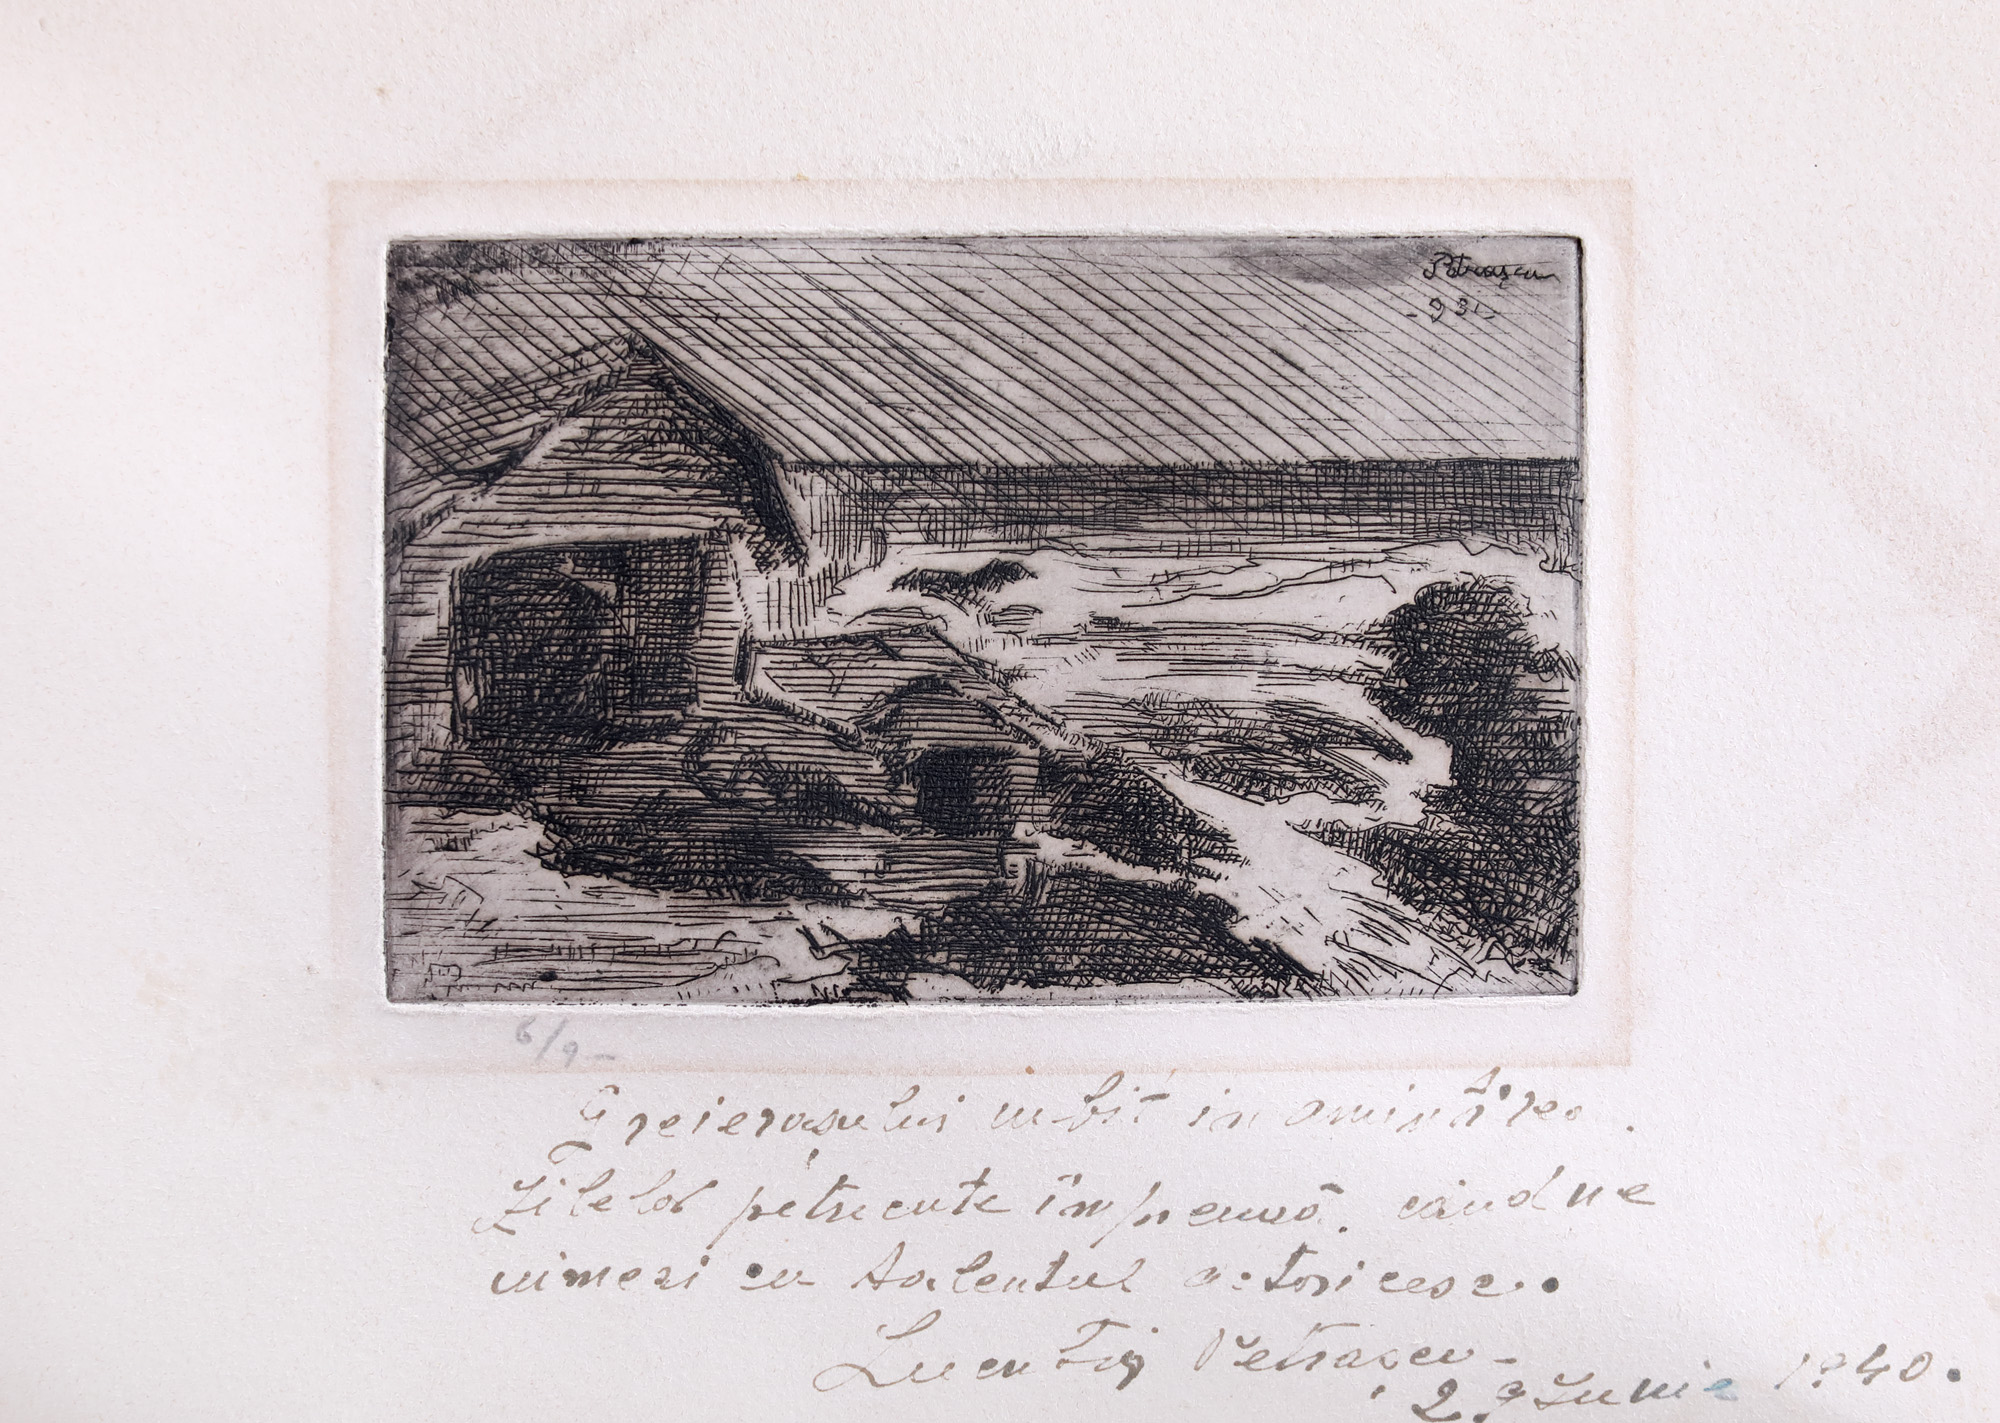 Petrașcu
-931-
6/9-
Greierașului iubit in amintirea
Zilelor petrecute împreună. când ne
uimeai cu talentul actoricesc.
Petrașcu-
29 Iunie 1940.